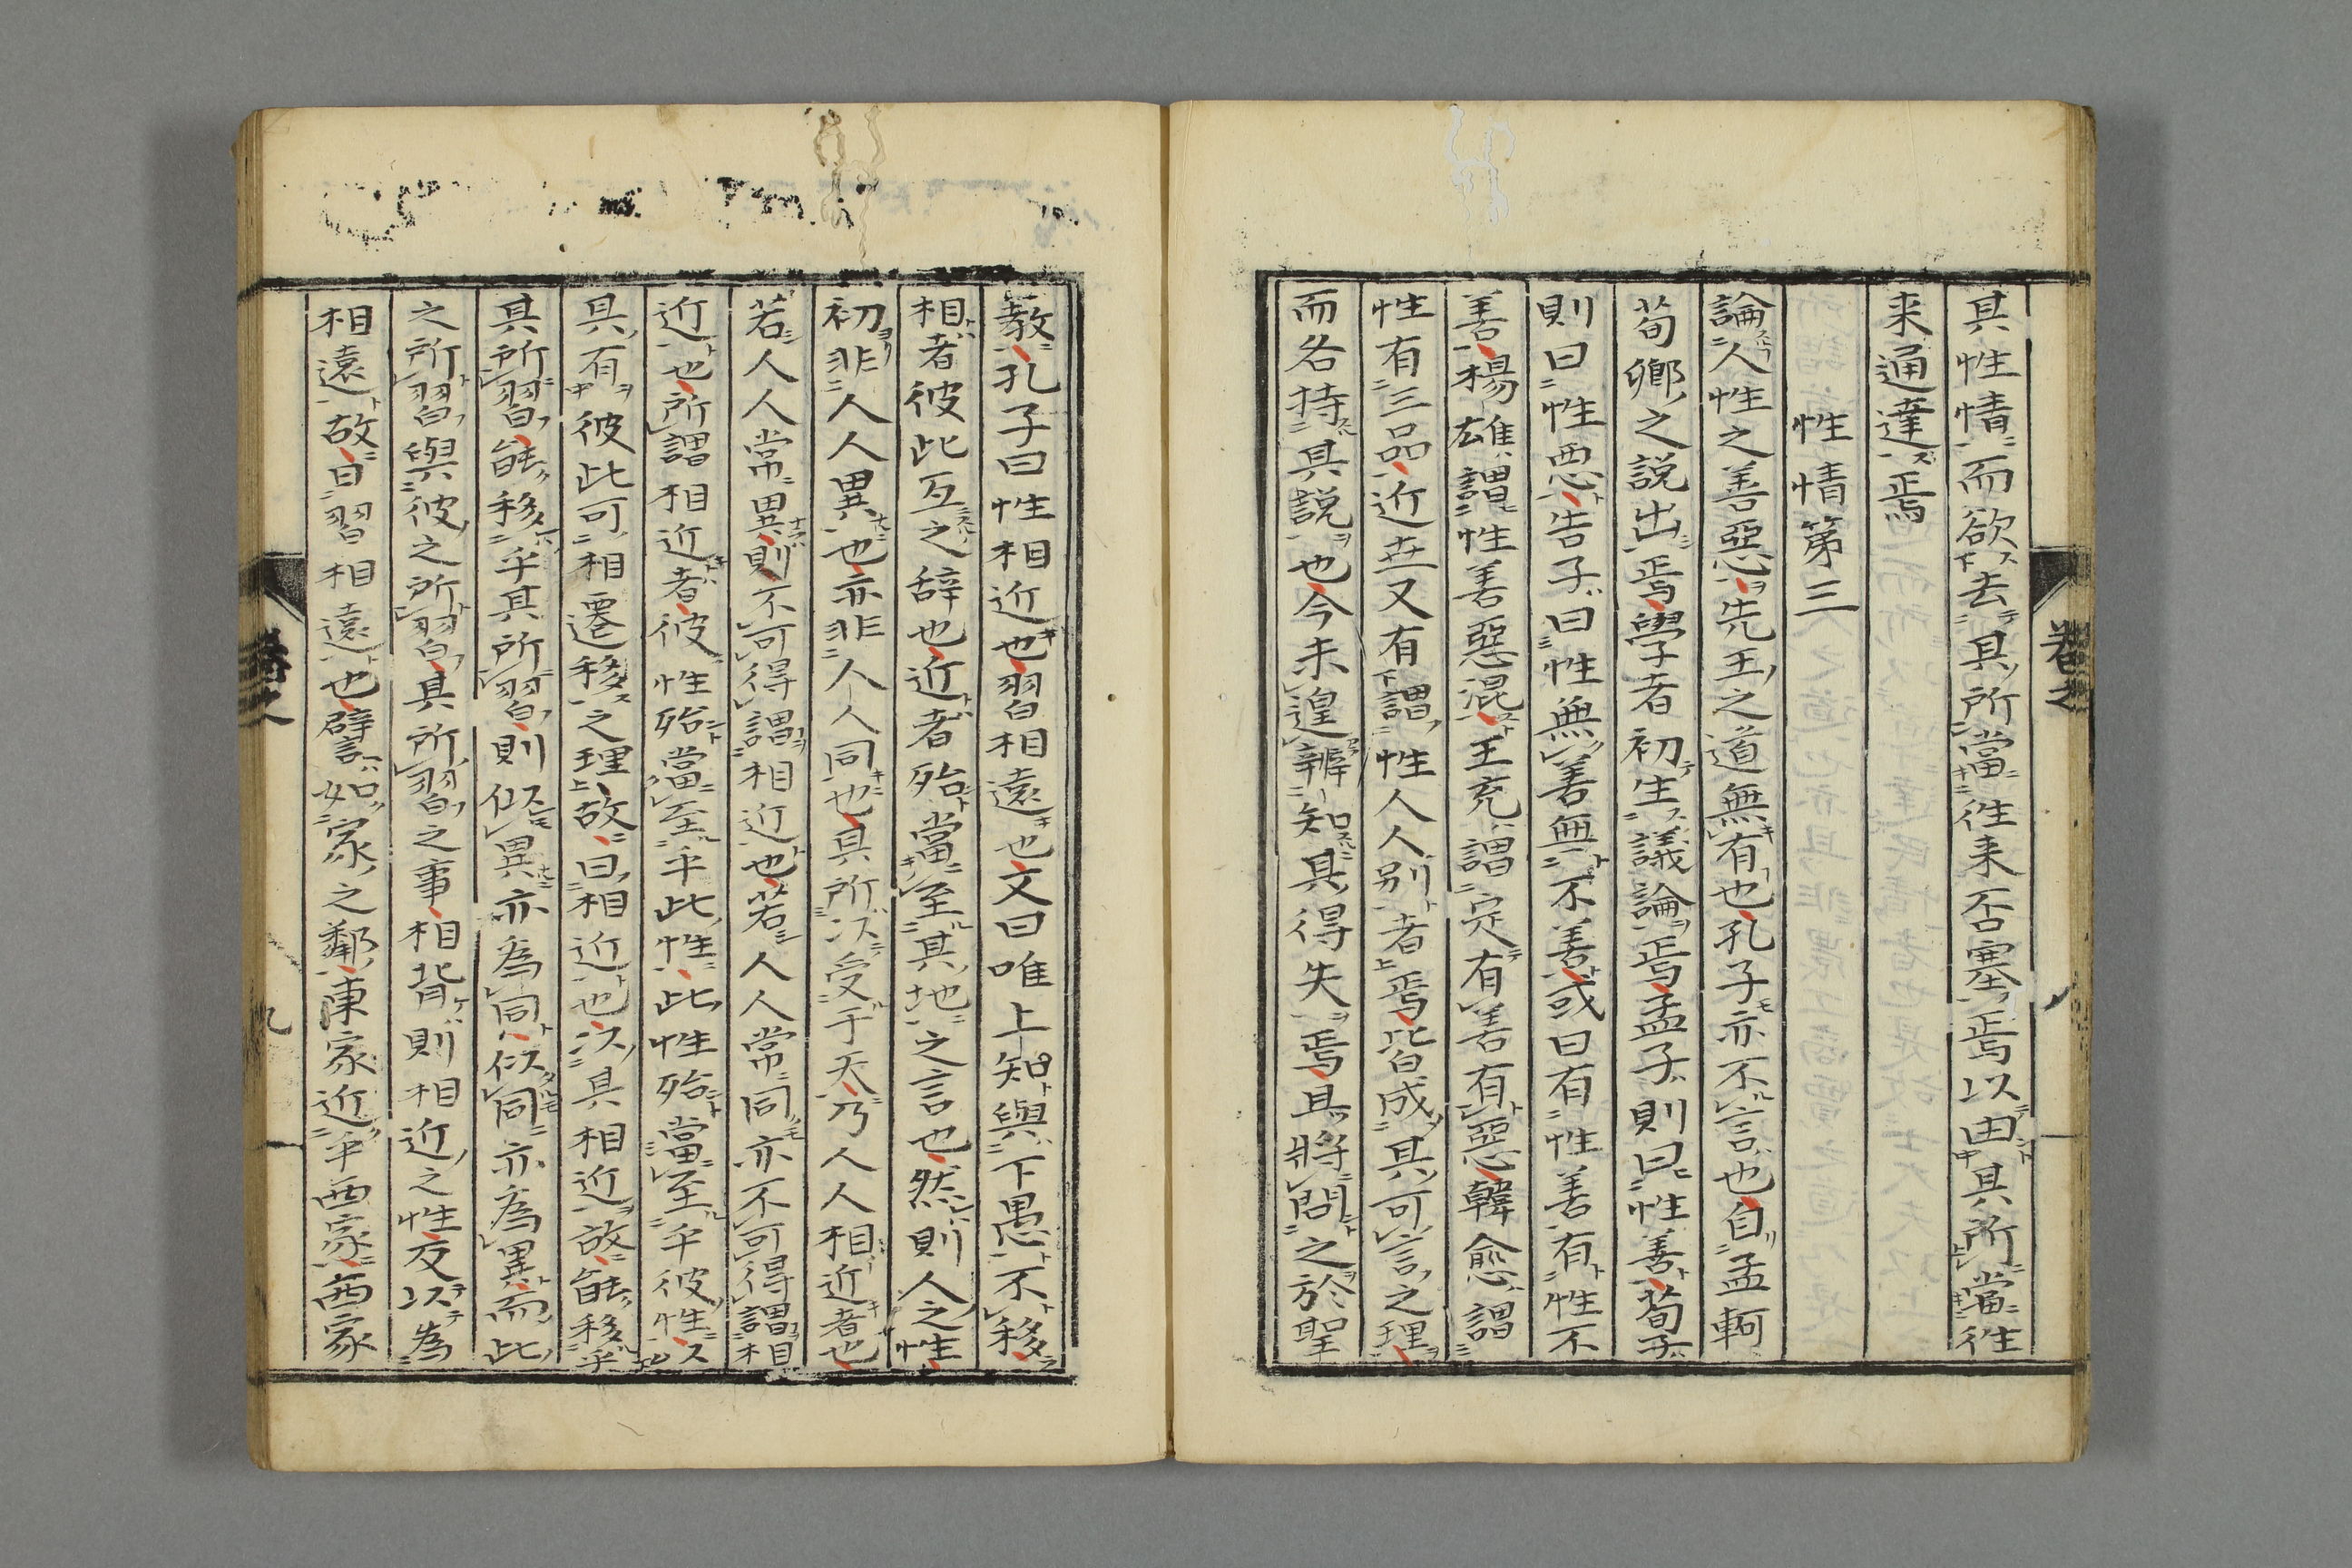 其性情而欲去其所當徃来否塞焉以由其所當徃
来通達焉
性情第三
論人性之善惡先王之道無有也孔子亦不言也自孟軻
荀卿之説出焉學者初生議論焉孟子則曰性善荀子
則曰性悪告子曰性無善無不善或曰有性善有性不
善楊雄謂性善惡混王充謂定有善有惡韓愈謂
性有三品近世又有謂性人人別者焉皆成其可言之理
而各持其説也今未遑辨知其得失焉且將問之於聖
教孔子曰性相近也習相遠也文曰唯上知與下愚不移
相者彼此互之辞也近者殆當至其地之言也然則人之性
初非人人異也亦非人人同也其所以受于天乃人人相近者也
若人人常異則不可得謂相近也若人人常同亦不可得謂相
近也所謂相近者彼性殆當至乎此性此性殆當至乎彼性
具有彼此可相遷移之理故曰相近也以其相近故能移乎
其所習能移乎其所習則似異亦為同似同亦為異而此
之所習與彼之所習其所習之事相背則相近之性反以為
相遠故曰習相遠也譬如家之鄰東家近乎西家西家
卷之
九